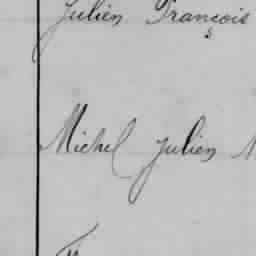 Julien François
Michel Julien